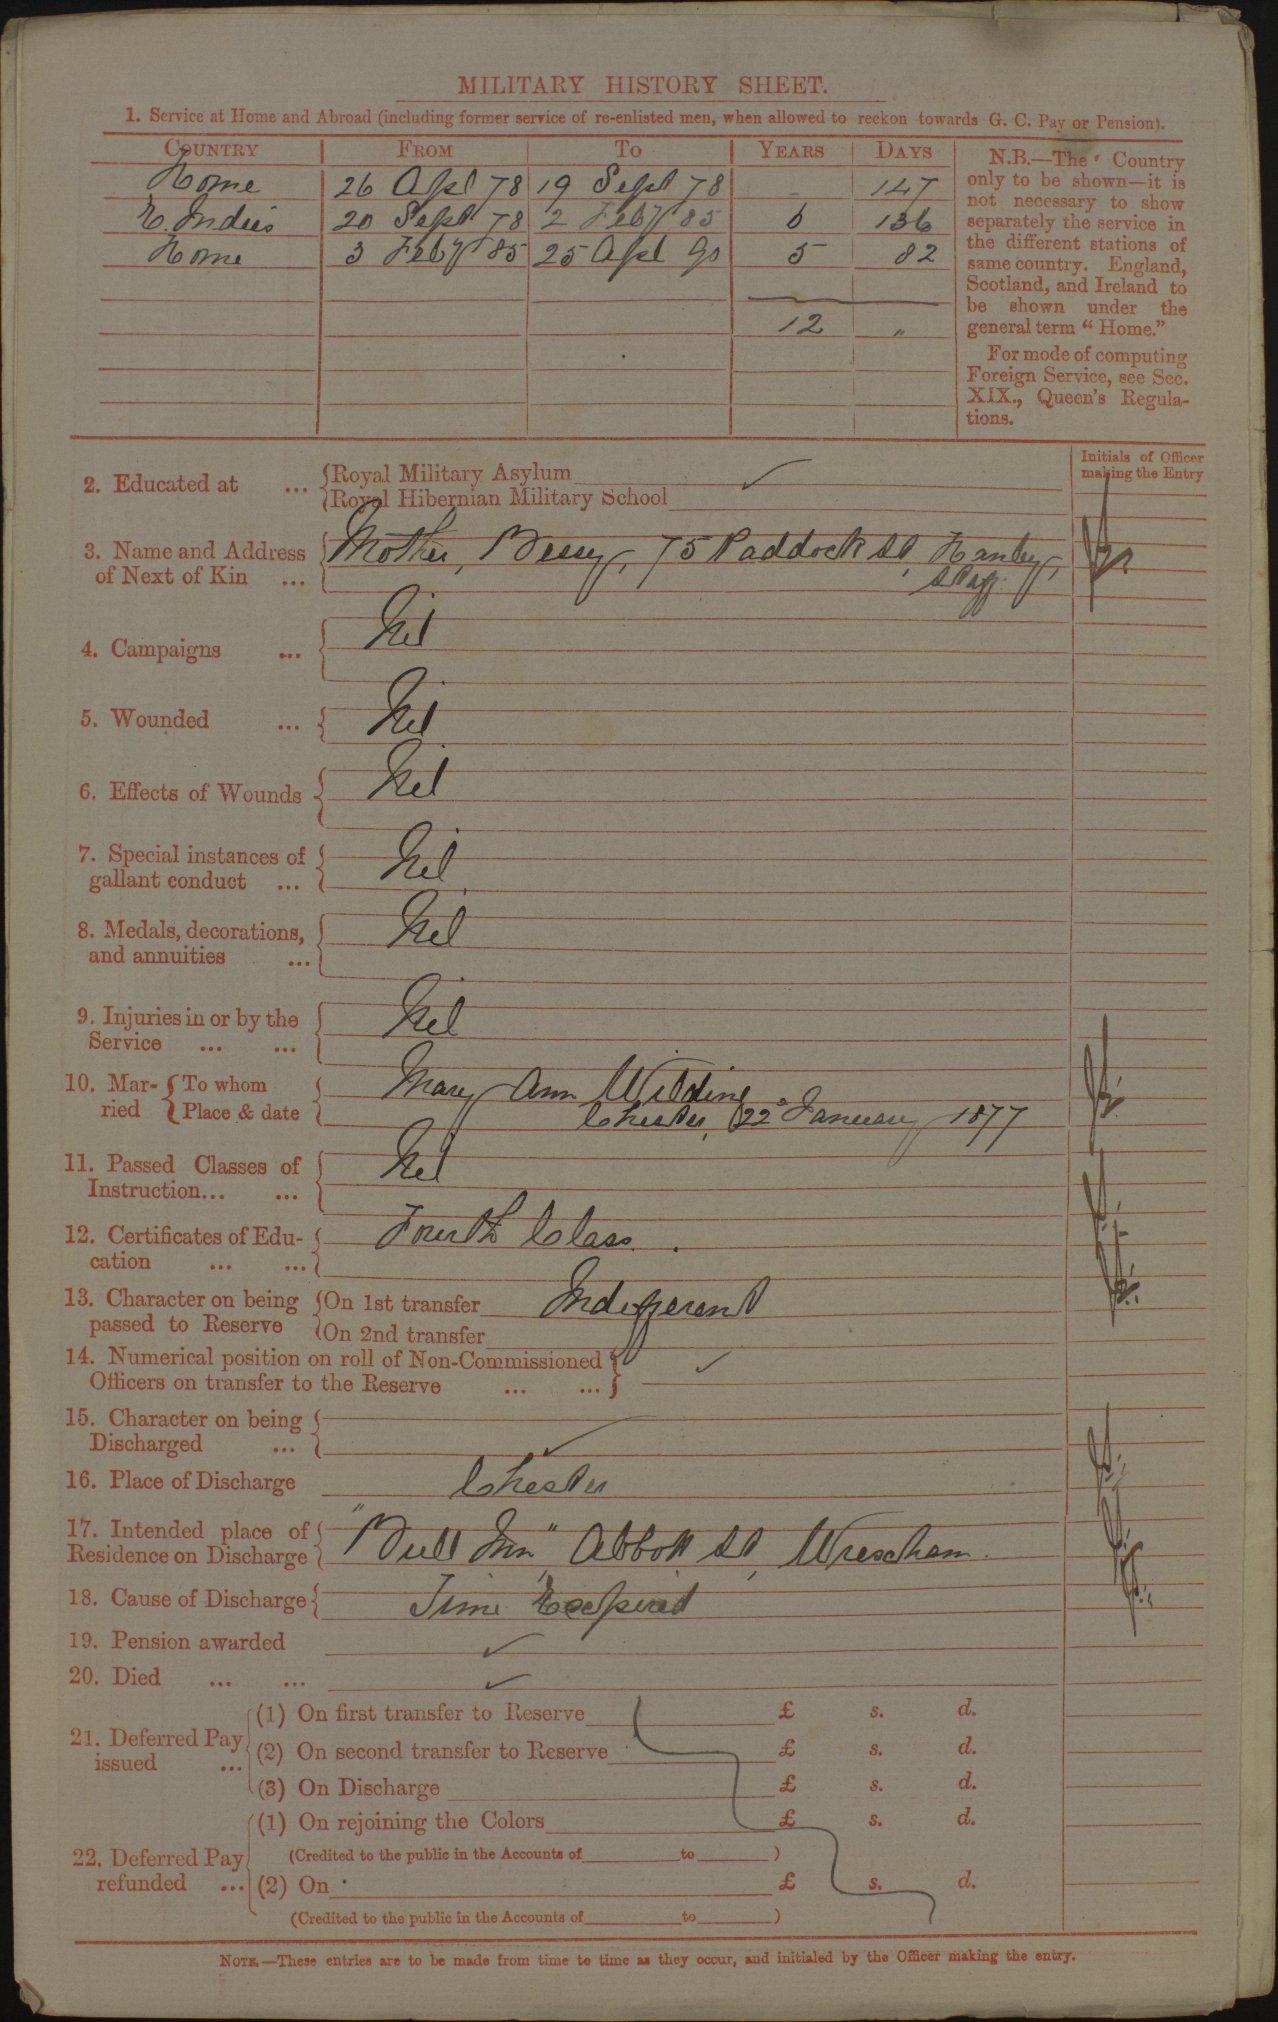 MILITARY HISTORY SHEET.
1. Service at Home and Abroad (including former service of re-enlisted men, when allowed to reckon towards G. C. Pay or Pension).
COUNTRY FROM TO YEARS DAYS
Home 26 Apl 78 19 Sept 78 - 147
E. Indies 20 Sept 78 2 Feby 85 6 136
Home 3 Feby 85 25 Apl 90 5 82
12 "
N.B.—The Country
only to be shown—it is
not necessary to show
separately the service in
the different stations of
same country. England,
Scotland, and Ireland to
be shown under the
general term “ Home.”
For mode of computing
Foreign Service, see Sec.
XIX., Queen's Regula-
tions.
Initials of Officer
making the Entry
2. Educated at ... Royal Military Asylum ✓
Royal Hibernian Military School
3. Name and Address Mother, Bessy, 75 Paddock St, Hanley,
of Next of Kin ... Staff.
4. Campaigns ... Nil
5. Wounded ... Nil
6. Effects of Wounds Nil
7. Special instances of
gallant conduct ... Nil
8. Medals, decorations, Nil
and annuities ...
9. Injuries in or by the Nil
Service ... ...
10. Mar- To whom Mary Ann Wilding
ried Place & date Chester, 22d January 1877
11. Passed Classes of Nil
Instruction... ...
12. Certificates of Edu- Fourth Class.
cation ... ...
13. Character on being On 1st transfer Indifferent
passed to Reserve On 2nd transfer
14. Numerical position on roll of Non-Commissioned ✓
Officers on transfer to the Reserve ... ...
15. Character on being
Discharged ... ✓
16. Place of Discharge Chester
17. Intended place of "Bull Inn" Abbott St, Wrexham.
Residence on Discharge
18. Cause of Discharge Time Expired
19. Pension awarded ✓
20. Died ... ... ✓
21. Deferred Pay
issued ...
(1) On first transfer to Reserve £ s. d.
(2) On second transfer to Reserve £ s. d.
(3) On Discharge £ s. d.
22. Deferred Pay
refunded ...
(1) On rejoining the Colors £ s. d.
(Credited to the public in the Accounts of to )
(2) On £ s. d.
(Credited to the public in the Accounts of to )
NOTE.—These entries are to be made from time to time as they occur, and initialed by the Officer making the entry.